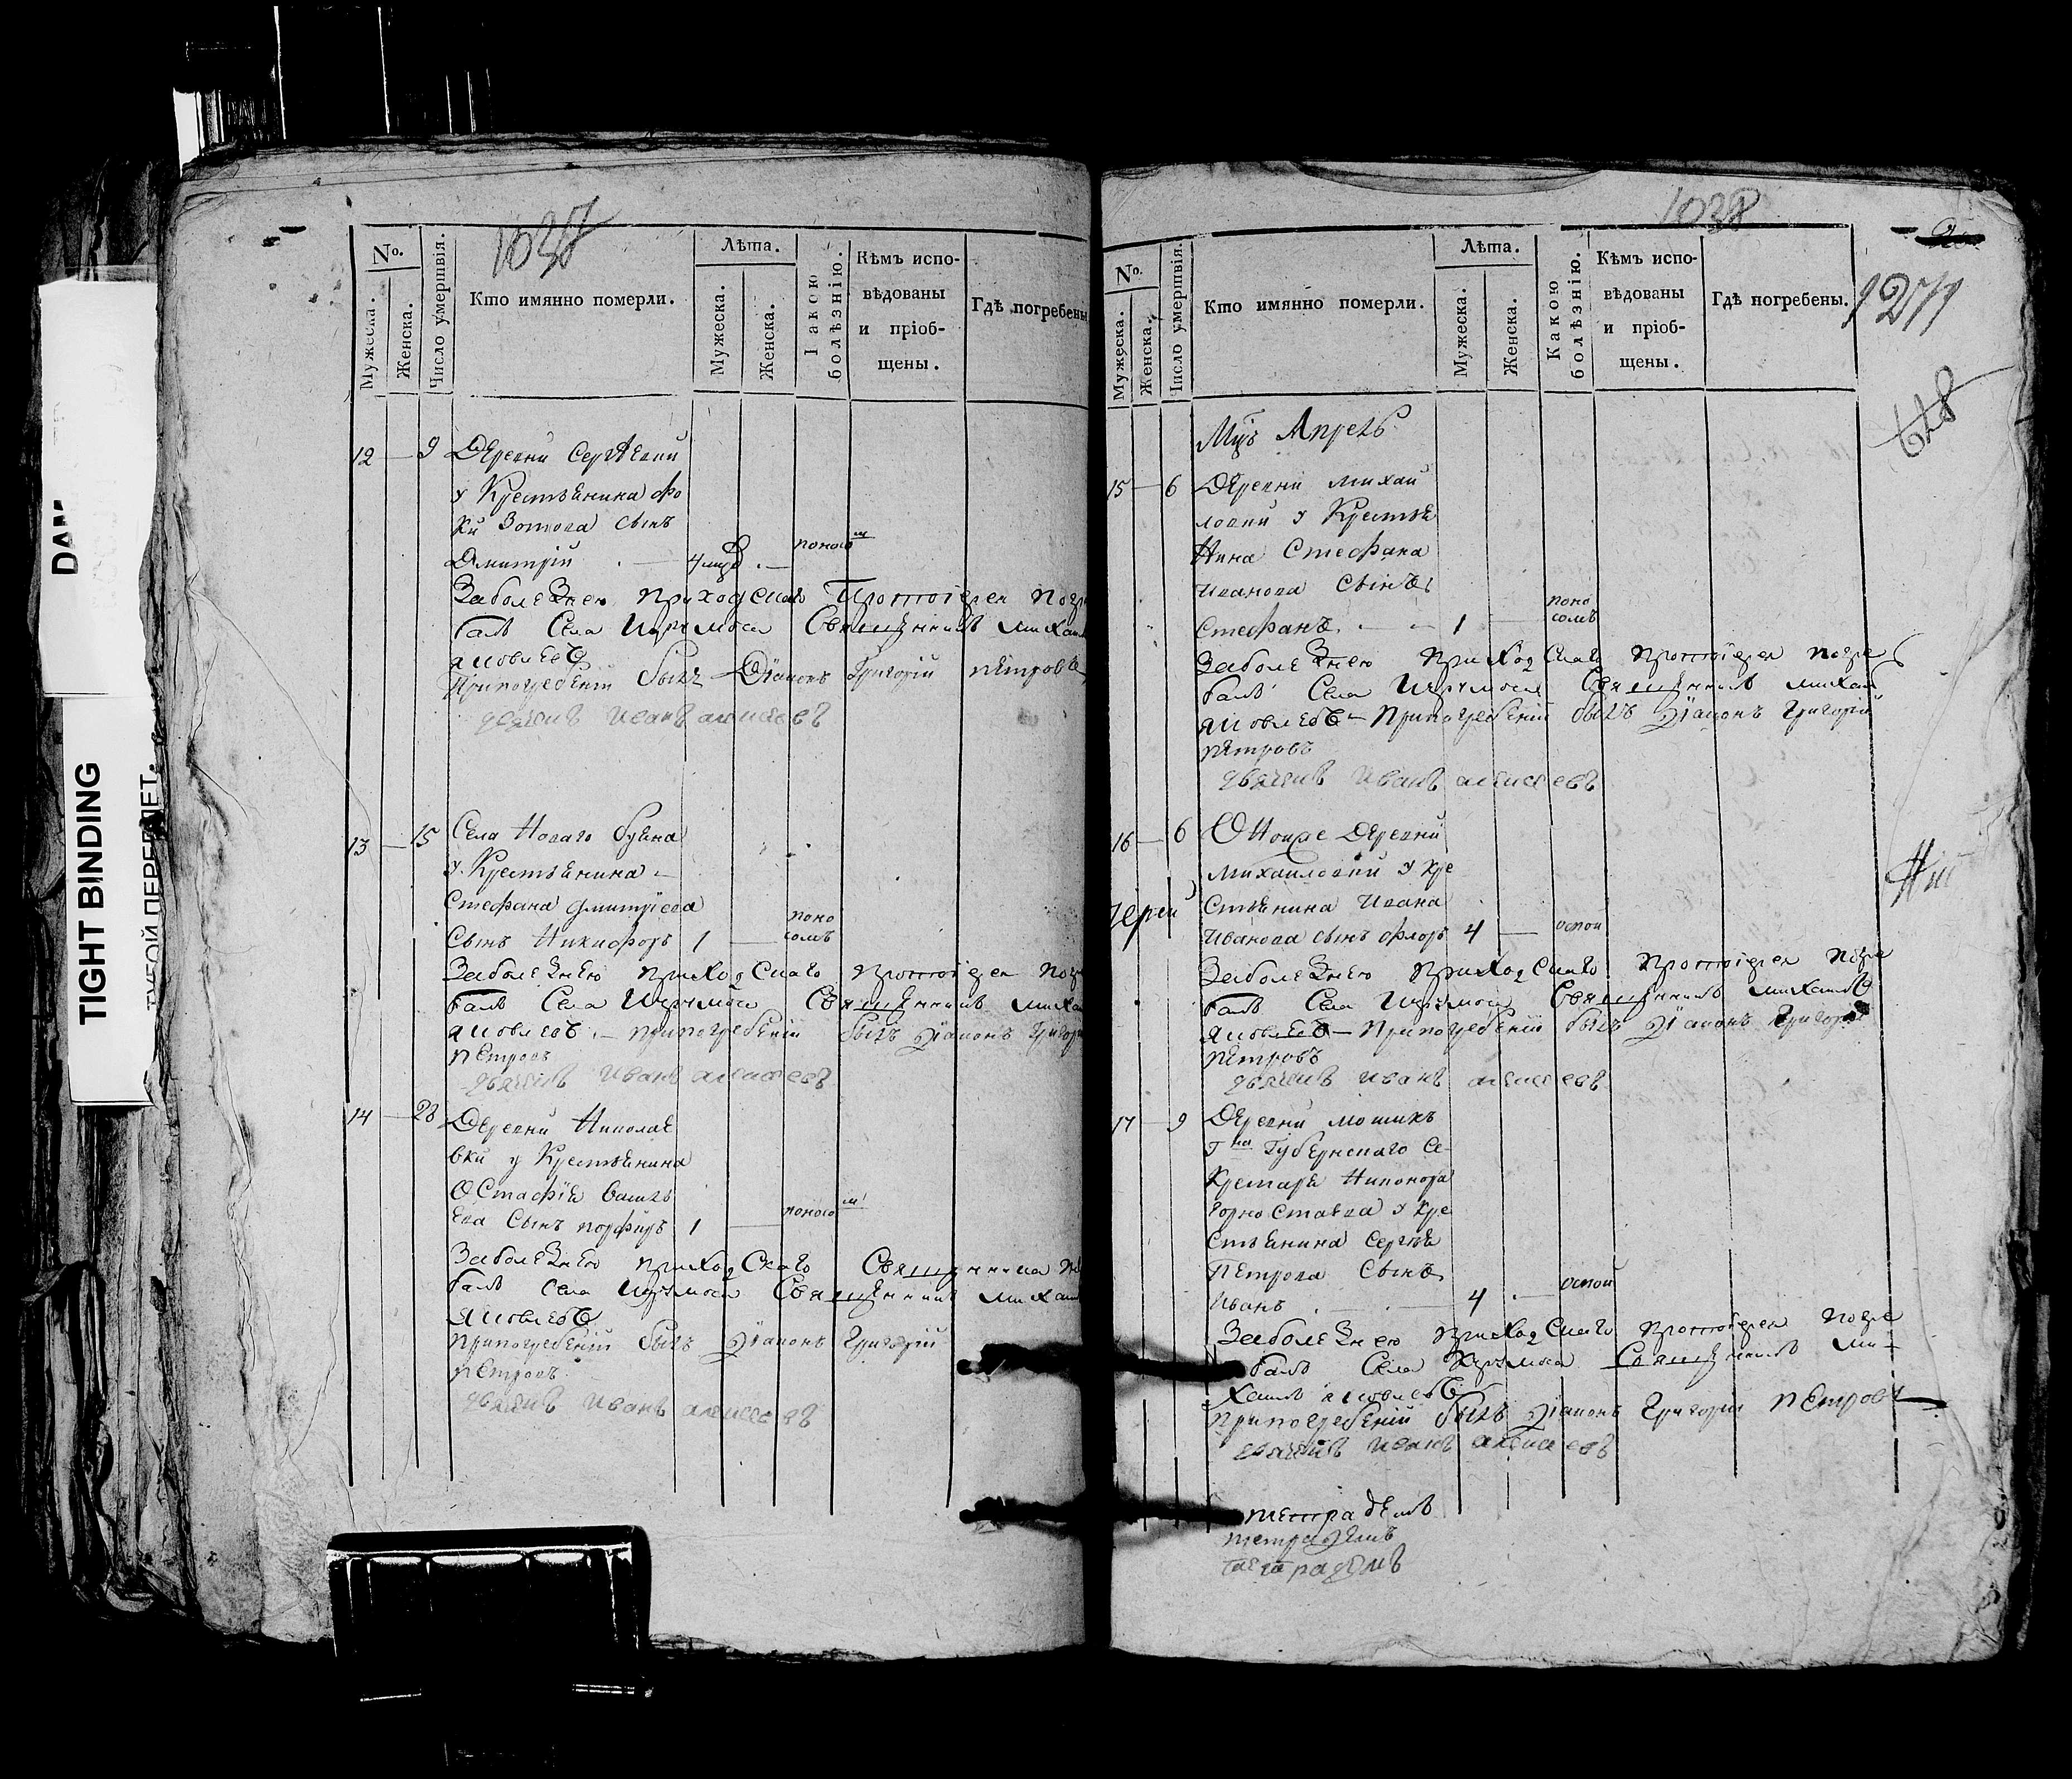 DAM
TIGHT BINDING
ТУГОЙ ПЕРЕПЛЕТ.
1037
№.
Мужеска.
Женска.
Число умершвія.
Кто имянно померли.
Лѣта.
Мужеска.
Женска.
Какою болѣзнію.
Кѣмъ испо-
вѣдованы
и пріоб-
щены.
Гдѣ погребены
12 — 9 Деревни Сергѣевки
у Крестьянина Фо
ки Зотова сынъ
Дмитрій 4 поносом
За болезнею приходскаго Протоіерея погре
балъ Села Чермоса Священникъ Михаилъ
Яковлевъ
При погребеніи былъ Діаконъ Григорій Петровъ
дьячекъ Иванъ Алексеевъ
13 — 15 Села Новаго Буяна
у Крестьянина
Стефана Дмитріева
Сынъ Никифоръ 1 — поно
сомъ
За болезнею приходскаго протоіерея погре
балъ Села Священникъ Михаилъ
Яковлевъ. — При погребеніи былъ Діаконъ Григорій
Петровъ
дьячекъ Иванъ Алексеевъ
14 — 28 Деревни Николае
вки у Крестьянина
Остафія Василь
ева Сынъ порфиръ 1 — поносом
За болезнею приходскаго Священника
балъ Села Священникъ Михаилъ
Яковлевъ
При погребеніи былъ Діаконъ Григорій
Петровъ
дьячекъ Иванъ Алексеевъ
1038
1271
628
№.
Мужеска.
Женска.
Число умершвія.
Кто имянно померли.
Лѣта.
Мужеска.
Женска.
Какою болѣзнію.
Кѣмъ испо-
вѣдованы
и пріоб-
щены.
Гдѣ погребены.
Мцъ Апрель
15 — 6 Деревни Михай
ловки у Крестья
нина Стефана
Иванова Сынъ
Стефанъ 1 — поно
сомъ
За болезнею приходскаго протоіерея погре
балъ Села Священникъ Михаилъ
Яковлевъ — При погребеніи былъ Діаконъ Григорій
Петровъ
дьячекъ Иванъ Алексеевъ
16 — 6 Оной же Деревни
Михайловки у Кре
стьянина Ивана
Иванова сынъ Флоръ 4 — оспой
За болезнею приходскаго протоіерея погре
балъ Села Священникъ Михаилъ
Яковлевъ — При погребеніи былъ Діаконъ Григорій
Петровъ
дьячекъ Иванъ Алексеевъ
17 — 9 Деревни
Гна Губернскаго Се
кретаря Никонора
Горностаева у Кре
стьянина Сергѣя
Петрова Сынъ
Иванъ 4 — оспой
За болезнею приходскаго протоіерея погре
балъ Села Священникъ Ми-
хаилъ Яковлевъ
При погребеніи былъ Діаконъ Григорій Петровъ
дьячекъ Иванъ Алексеевъ